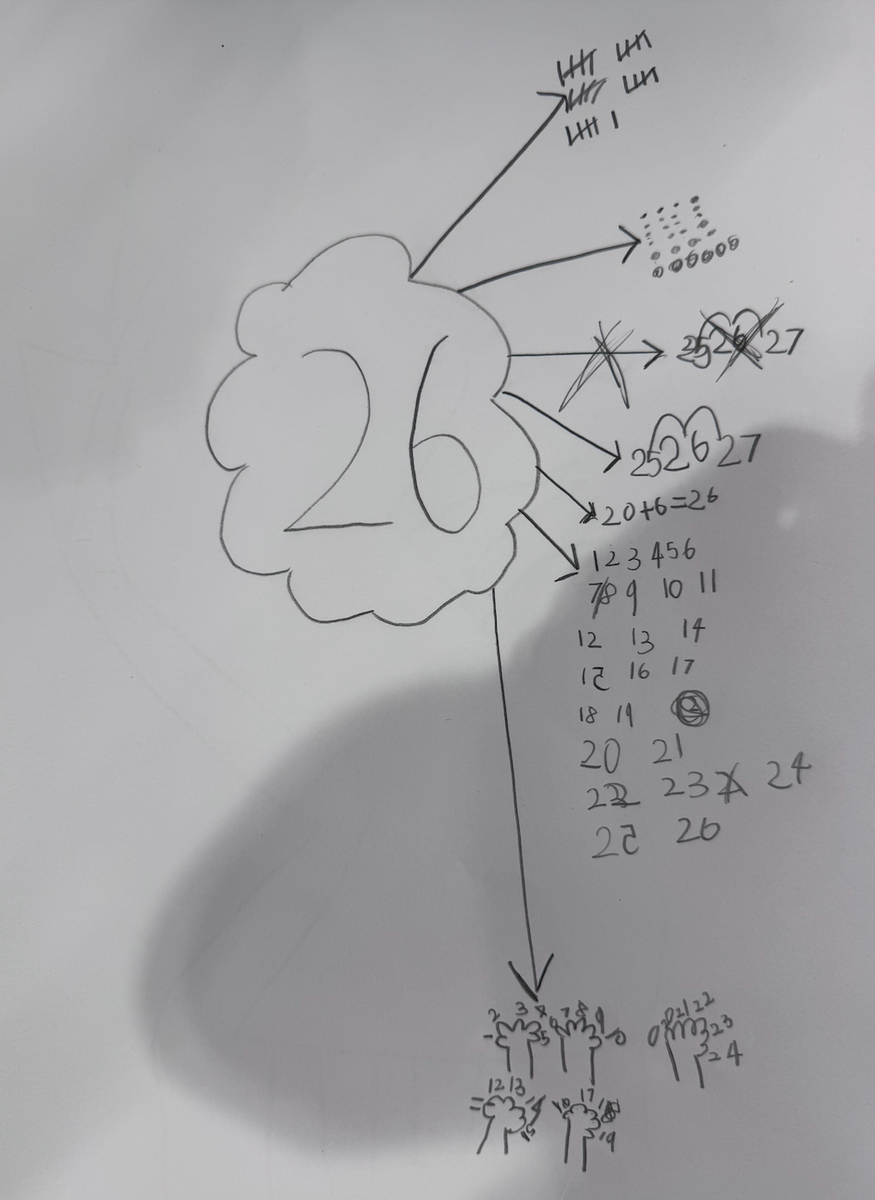 26
25 26 27
25 26 27
20+6=26
1 2 3 4 5 6
7 8 9 10 11
12 13 14
15 16 17
18 19
20 21
22 23 24
25 26
2 3 4 5 6 7 8 9
20 21 22 23 24
12 13
17 19